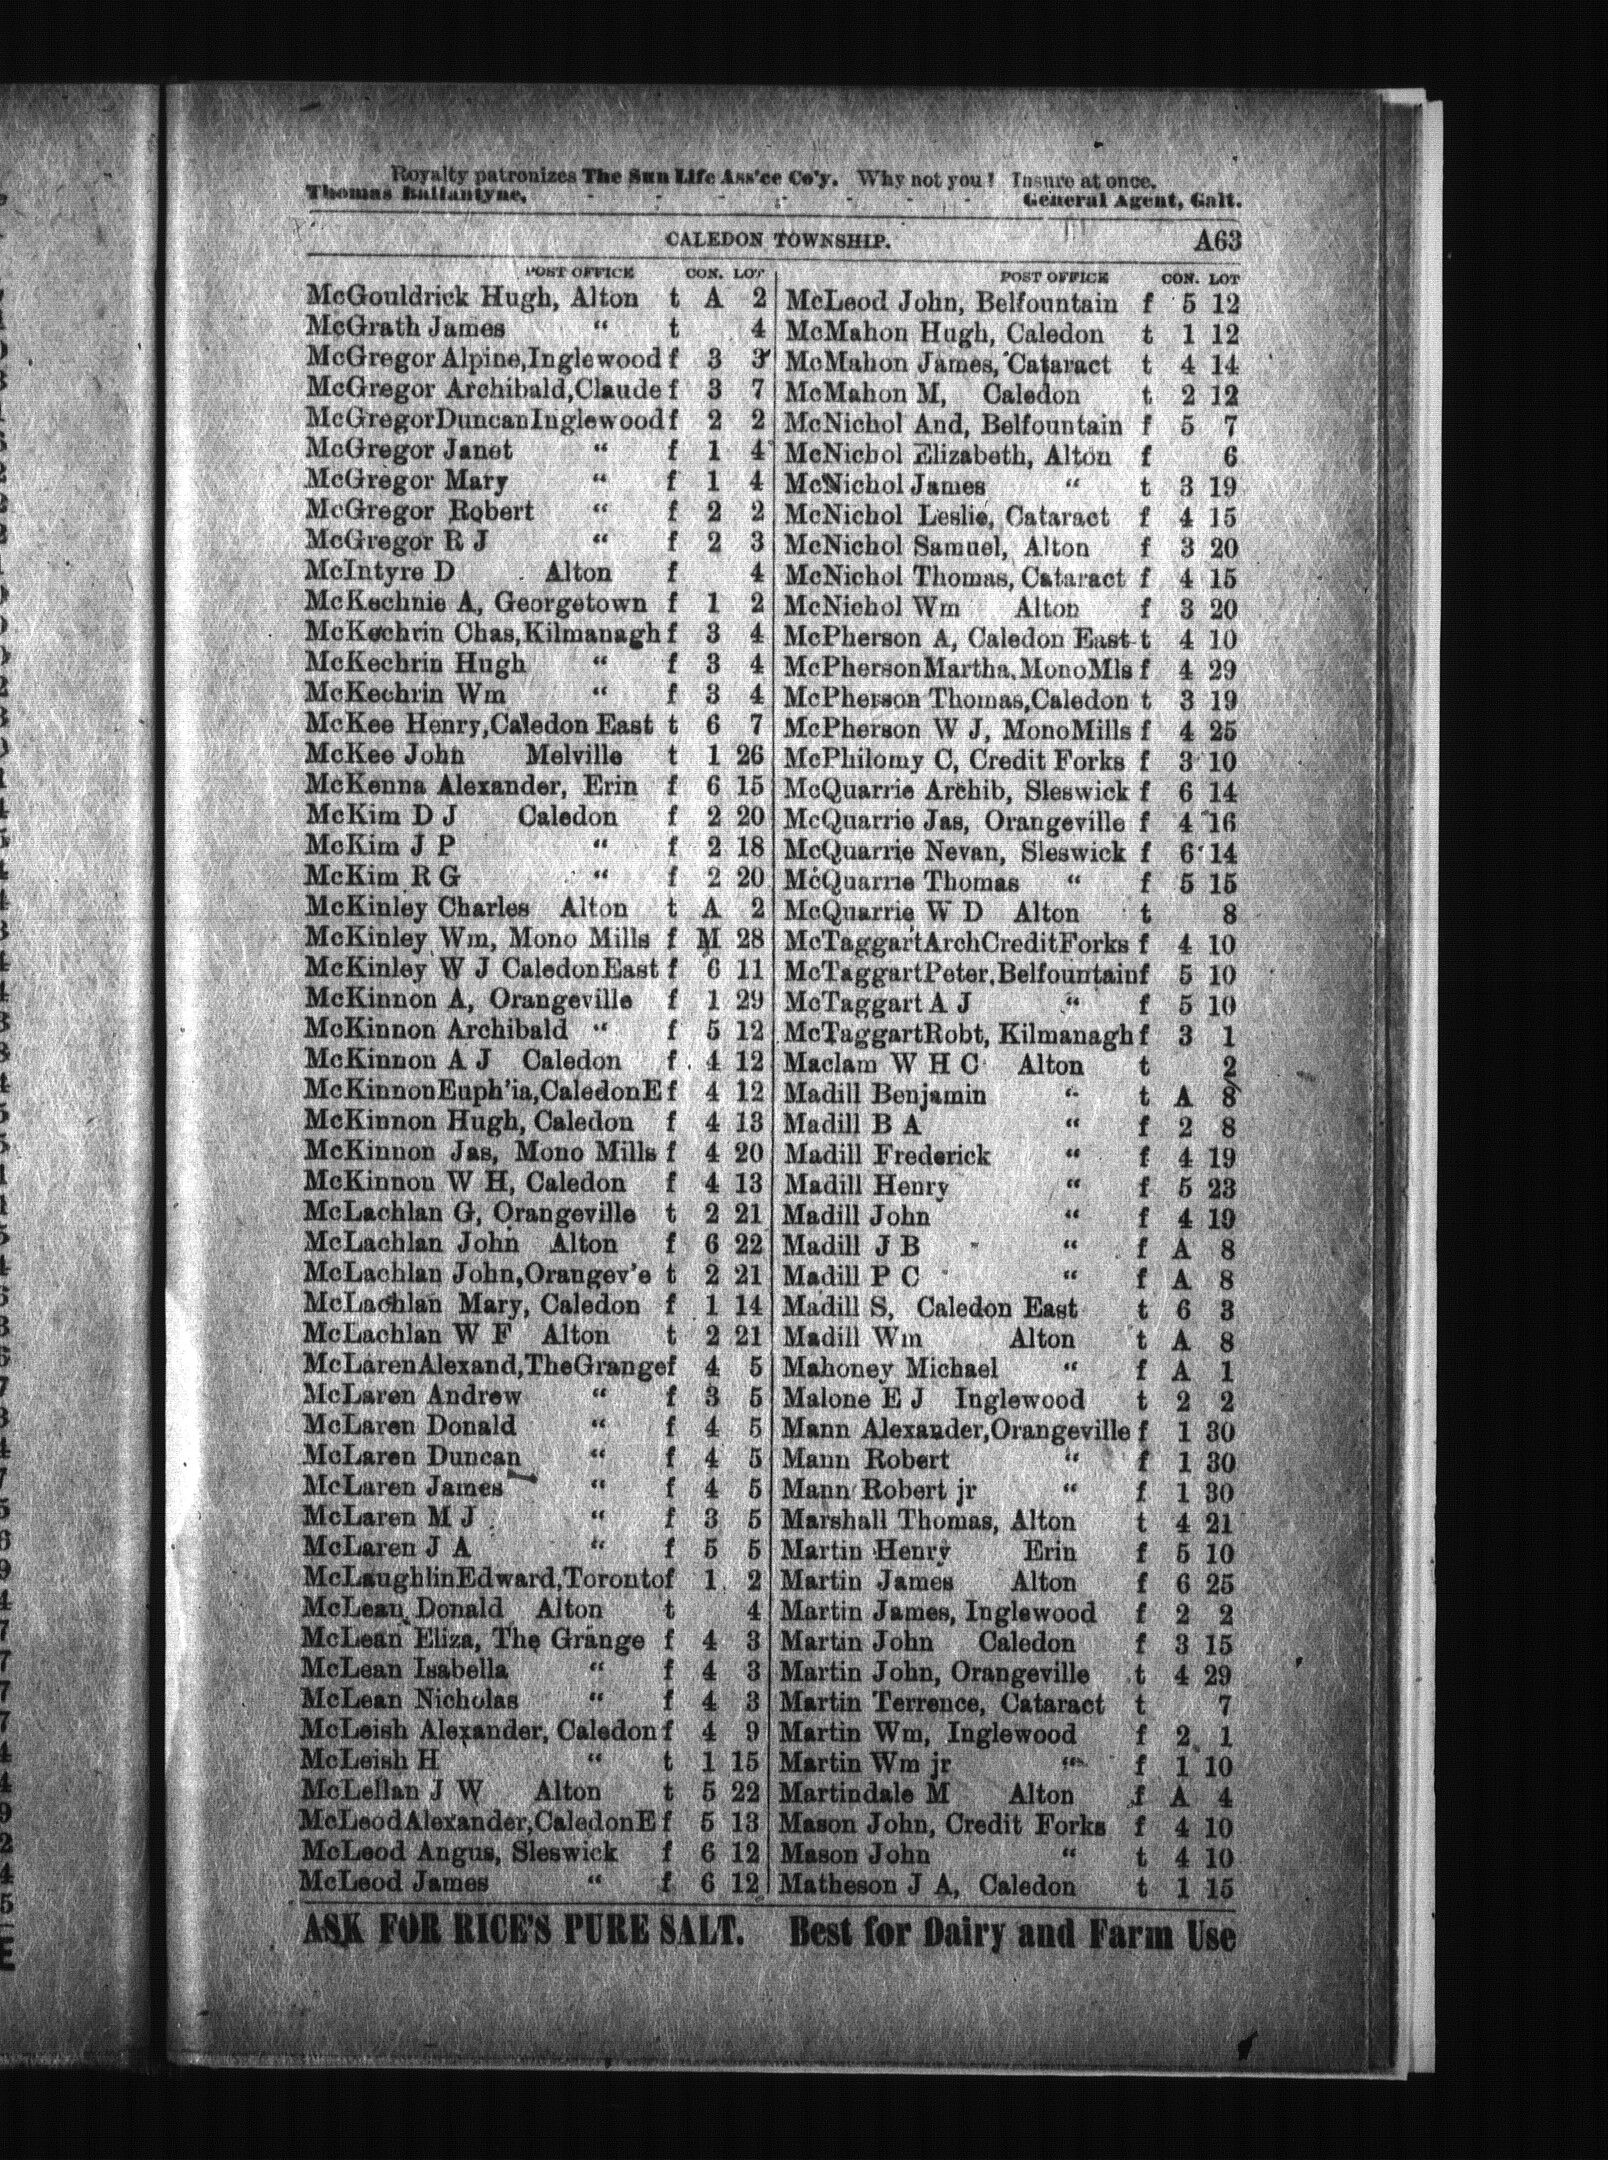 Royalty patronizes The Sun Life Ass'ce Co'y. Why not you! Insure at once.
Thomas Ballantyne, - - - - - - - General Agent, Galt.
CALEDON TOWNSHIP. A63
POST OFFICE CON. LOT
McGouldrick Hugh, Alton t A 2
McGrath James " t 4
McGregor Alpine,Inglewood f 3 3
McGregor Archibald,Claude f 3 7
McGregorDuncanInglewood f 2 2
McGregor Janet " f 1 4
McGregor Mary " f 1 4
McGregor Robert " f 2 2
McGregor R J " f 2 3
McIntyre D Alton f 4
McKechnie A, Georgetown f 1 2
McKechrin Chas,Kilmanagh f 3 4
McKechrin Hugh " f 3 4
McKechrin Wm " f 3 4
McKee Henry,Caledon East t 6 7
McKee John Melville t 1 26
McKenna Alexander, Erin f 6 15
McKim D J Caledon f 2 20
McKim J P " f 2 18
McKim R G " f 2 20
McKinley Charles Alton t A 2
McKinley Wm, Mono Mills f M 28
McKinley W J CaledonEast f 6 11
McKinnon A, Orangeville f 1 29
McKinnon Archibald " f 5 12
McKinnon A J Caledon f 4 12
McKinnonEuph'ia,CaledonE f 4 12
McKinnon Hugh, Caledon f 4 13
McKinnon Jas, Mono Mills f 4 20
McKinnon W H, Caledon f 4 13
McLachlan G, Orangeville t 2 21
McLachlan John Alton f 6 22
McLachlan John,Orangev'e t 2 21
McLachlan Mary, Caledon f 1 14
McLachlan W F Alton t 2 21
McLarenAlexand,TheGrangef 4 5
McLaren Andrew " f 3 5
McLaren Donald " f 4 5
McLaren Duncan " f 4 5
McLaren James " f 4 5
McLaren M J " f 3 5
McLaren J A " f 5 5
McLaughlinEdward,Torontof 1 2
McLean Donald Alton t 4
McLean Eliza, The Grange f 4 3
McLean Isabella " f 4 3
McLean Nicholas " f 4 3
McLeish Alexander, Caledon f 4 9
McLeish H " t 1 15
McLellan J W Alton t 5 22
McLeodAlexander,CaledonE f 5 13
McLeod Angus, Sleswick f 6 12
McLeod James " f 6 12
POST OFFICE CON. LOT
McLeod John, Belfountain f 5 12
McMahon Hugh, Caledon t 1 12
McMahon James, Cataract t 4 14
McMahon M, Caledon t 2 12
McNichol And, Belfountain f 5 7
McNichol Elizabeth, Alton f 6
McNichol James " t 3 19
McNichol Leslie, Cataract f 4 15
McNichol Samuel, Alton f 3 20
McNichol Thomas, Cataract f 4 15
McNichol Wm Alton f 3 20
McPherson A, Caledon East t 4 10
McPhersonMartha,MonoMls f 4 29
McPherson Thomas,Caledon t 3 19
McPherson W J, MonoMills f 4 25
McPhilomy C, Credit Forks f 3 10
McQuarrie Archib, Sleswick f 6 14
McQuarrie Jas, Orangeville f 4 16
McQuarrie Nevan, Sleswick f 6 14
McQuarrie Thomas " f 5 15
McQuarrie W D Alton t 8
McTaggartArchCreditForks f 4 10
McTaggartPeter,Belfountainf 5 10
McTaggart A J " f 5 10
McTaggartRobt, Kilmanagh f 3 1
Maclam W H C Alton t 2
Madill Benjamin " t A 8
Madill B A " f 2 8
Madill Frederick " f 4 19
Madill Henry " f 5 23
Madill John " f 4 19
Madill J B " f A 8
Madill P C " f A 8
Madill S, Caledon East t 6 3
Madill Wm Alton t A 8
Mahoney Michael " f A 1
Malone E J Inglewood t 2 2
Mann Alexander,Orangeville f 1 30
Mann Robert " f 1 30
Mann Robert jr " f 1 30
Marshall Thomas, Alton t 4 21
Martin Henry Erin f 5 10
Martin James Alton f 6 25
Martin James, Inglewood f 2 2
Martin John Caledon f 3 15
Martin John, Orangeville t 4 29
Martin Terrence, Cataract t 7
Martin Wm, Inglewood f 2 1
Martin Wm jr " f 1 10
Martindale M Alton f A 4
Mason John, Credit Forks f 4 10
Mason John " t 4 10
Matheson J A, Caledon t 1 15
ASK FOR RICE'S PURE SALT. Best for Dairy and Farm Use